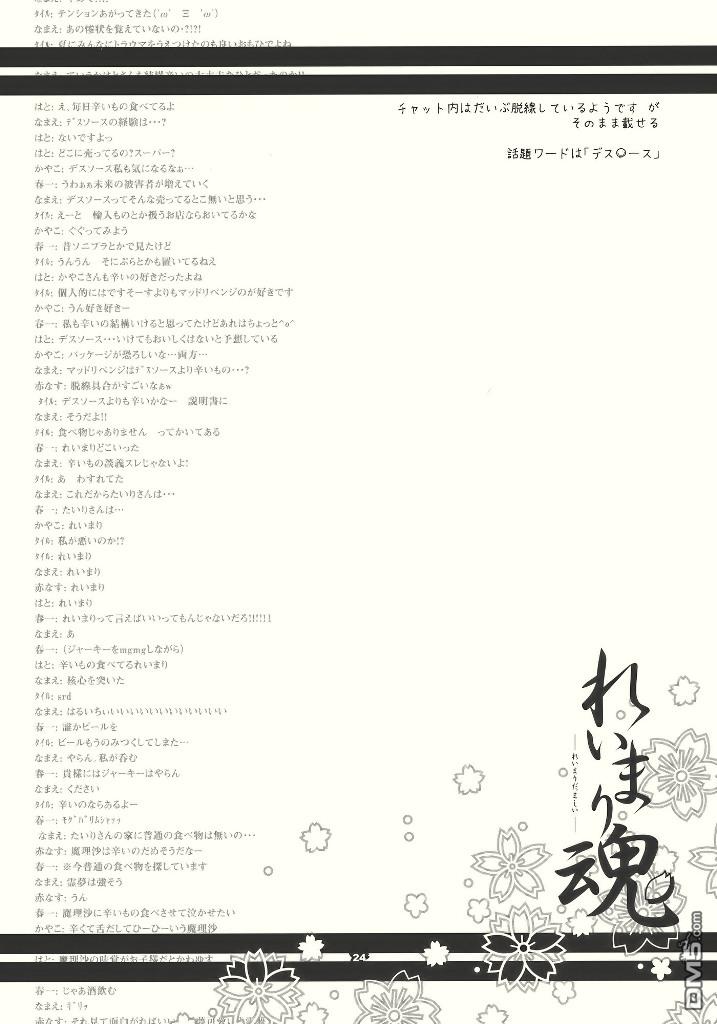 ﾀｲﾙ: テンションあがってきた('ω'　Ξ　'ω')
なまえ: あの惨状を覚えていないの・?!?!
ﾀｲﾙ: 夏にみんなにトラウマをうえつけたのも良いおもひでよね
はと: え、毎日辛いもの食べてるよ
なまえ: ﾃﾞｽソースの経験は・・・?
はと: ないですよっ
はと: どこに売ってるの?スーパー?
かやこ: デスソース私も気になるなぁ…
春一: うわぁぁ未来の被害者が増えていく
なまえ: デスソースってそんな売ってるとこ無いと思う・・・
ﾀｲﾙ: えーと　輸入ものとか扱うお店ならおいてるかな
かやこ: ぐぐってみよう
春一: 昔ソニプラとかで見たけど
ﾀｲﾙ: うんうん　そにぷらとかも置いてるねえ
はと: かやこさんも辛いの好きだったよね
ﾀｲﾙ: 個人的にはですそーすよりもマッドリベンジのが好きです
かやこ: うん好き好きー
春一: 私も辛いの結構いけると思ってたけどあれはちょっと^o^
はと: デスソース・・・いけてもおいしくはないと予想している
かやこ: パッケージが恐ろしいな…両方…
なまえ: マッドリベンジはﾃﾞｽソースより辛いもの・・・?
赤なす: 脱線具合がすごいなぁw
ﾀｲﾙ: デスソースよりも辛いかなー　説明書に
なまえ: そうだよ!!
ﾀｲﾙ: 食べ物じゃありません　ってかいてある
春一: れいまりどこいった
なまえ: 辛いもの談義スレじゃないよ!
ﾀｲﾙ: あ　わすれてた
なまえ: これだからたいりさんは・・・
春一: たいりさんは…
かやこ: れいまり
ﾀｲﾙ: 私が悪いのか!?
ﾀｲﾙ: れいまり
なまえ: れいまり
赤なす: れいまり
はと: れいまり
春一: れいまりって言えばいいってもんじゃないだろ!!!!!
なまえ: あ
春一: (ジャーキーをmgmgしながら)
はと: 辛いもの食べてるれいまり
なまえ: 核心を突いた
ﾀｲﾙ: srd
なまえ: はるいちぃいいいいいいいいいいいい
春一: 誰かビールを
ﾀｲﾙ: ビールもうのみつくしてしまた…
なまえ: やらん、私が呑む
春一: 貴様にはジャーキーはやらん
なまえ: ください
ﾀｲﾙ: 辛いのならあるよー
春一: ﾓｸﾞﾊﾞﾘﾑｼｬｯｯ
なまえ: たいりさんの家に普通の食べ物は無いの・・・
赤なす: 魔理沙は辛いのだめそうだなー
春一: ※今普通の食べ物を探しています
なまえ: 霊夢は強そう
赤なす: うん
春一: 魔理沙に辛いもの食べさせて泣かせたい
かやこ: 辛くて舌だしてひーひーいう魔理沙
はと: 魔理沙の味覚がお子様だとかわゆす
春一: じゃあ酒飲む
なまえ: ｷﾞﾘｯ
チャット内はだいぶ脱線しているようです　が
そのまま載せる
話題ワードは「デス○ース」
れいまり魂
れいまりだましい
24
DM5.com